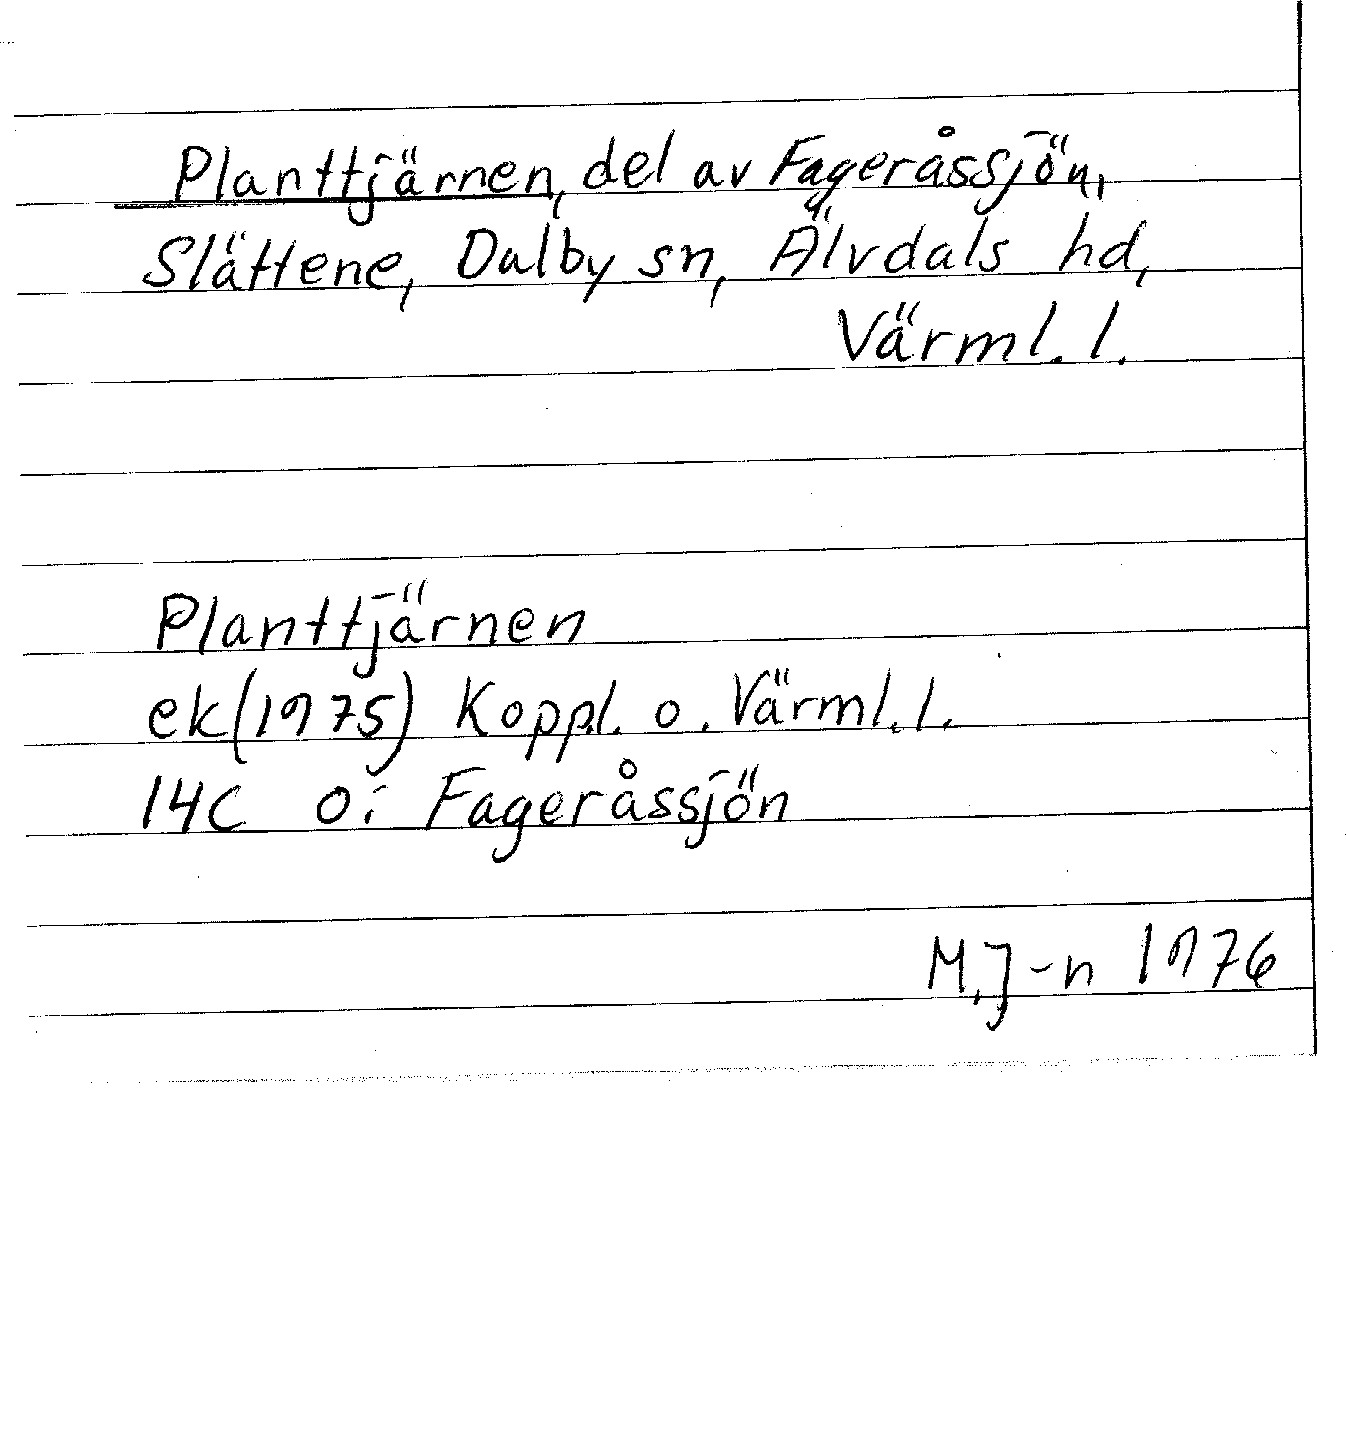 Planttjärnen, del av Fageråssjön,
Slättene, Dalby sn, Älvdals hd,
Värml. l.
Planttjärnen
ek(1975) Koppl. o. Värml. l.
14C o: Fageråssjön
M. J-n 1976